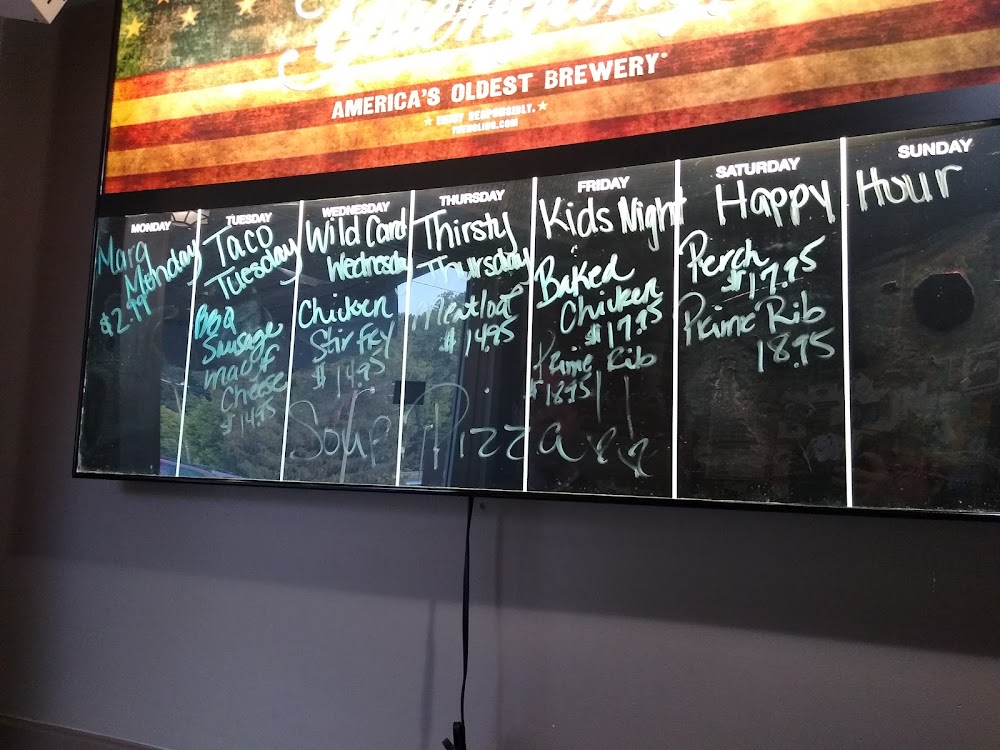 AMERICA'S OLDEST BREWERY®
★ ENJOY RESPONSIBLY. ★
YUENGLING.COM
MONDAY
Marg
Monday
$2.99
TUESDAY
Taco
Tuesday
BBQ
Sausage
mac &
Cheese
$14.95
WEDNESDAY
Wild Card
Wednesday
Chicken
Stir Fry
$14.95
THURSDAY
Thirsty
Thursday
Meatloaf
$14.95
FRIDAY
Kids Night
Baked
Chicken
$17.95
Prime Rib
$18.95
SATURDAY
SUNDAY
Happy Hour
Perch
$17.95
Prime Rib
18.95
Soup Pizza